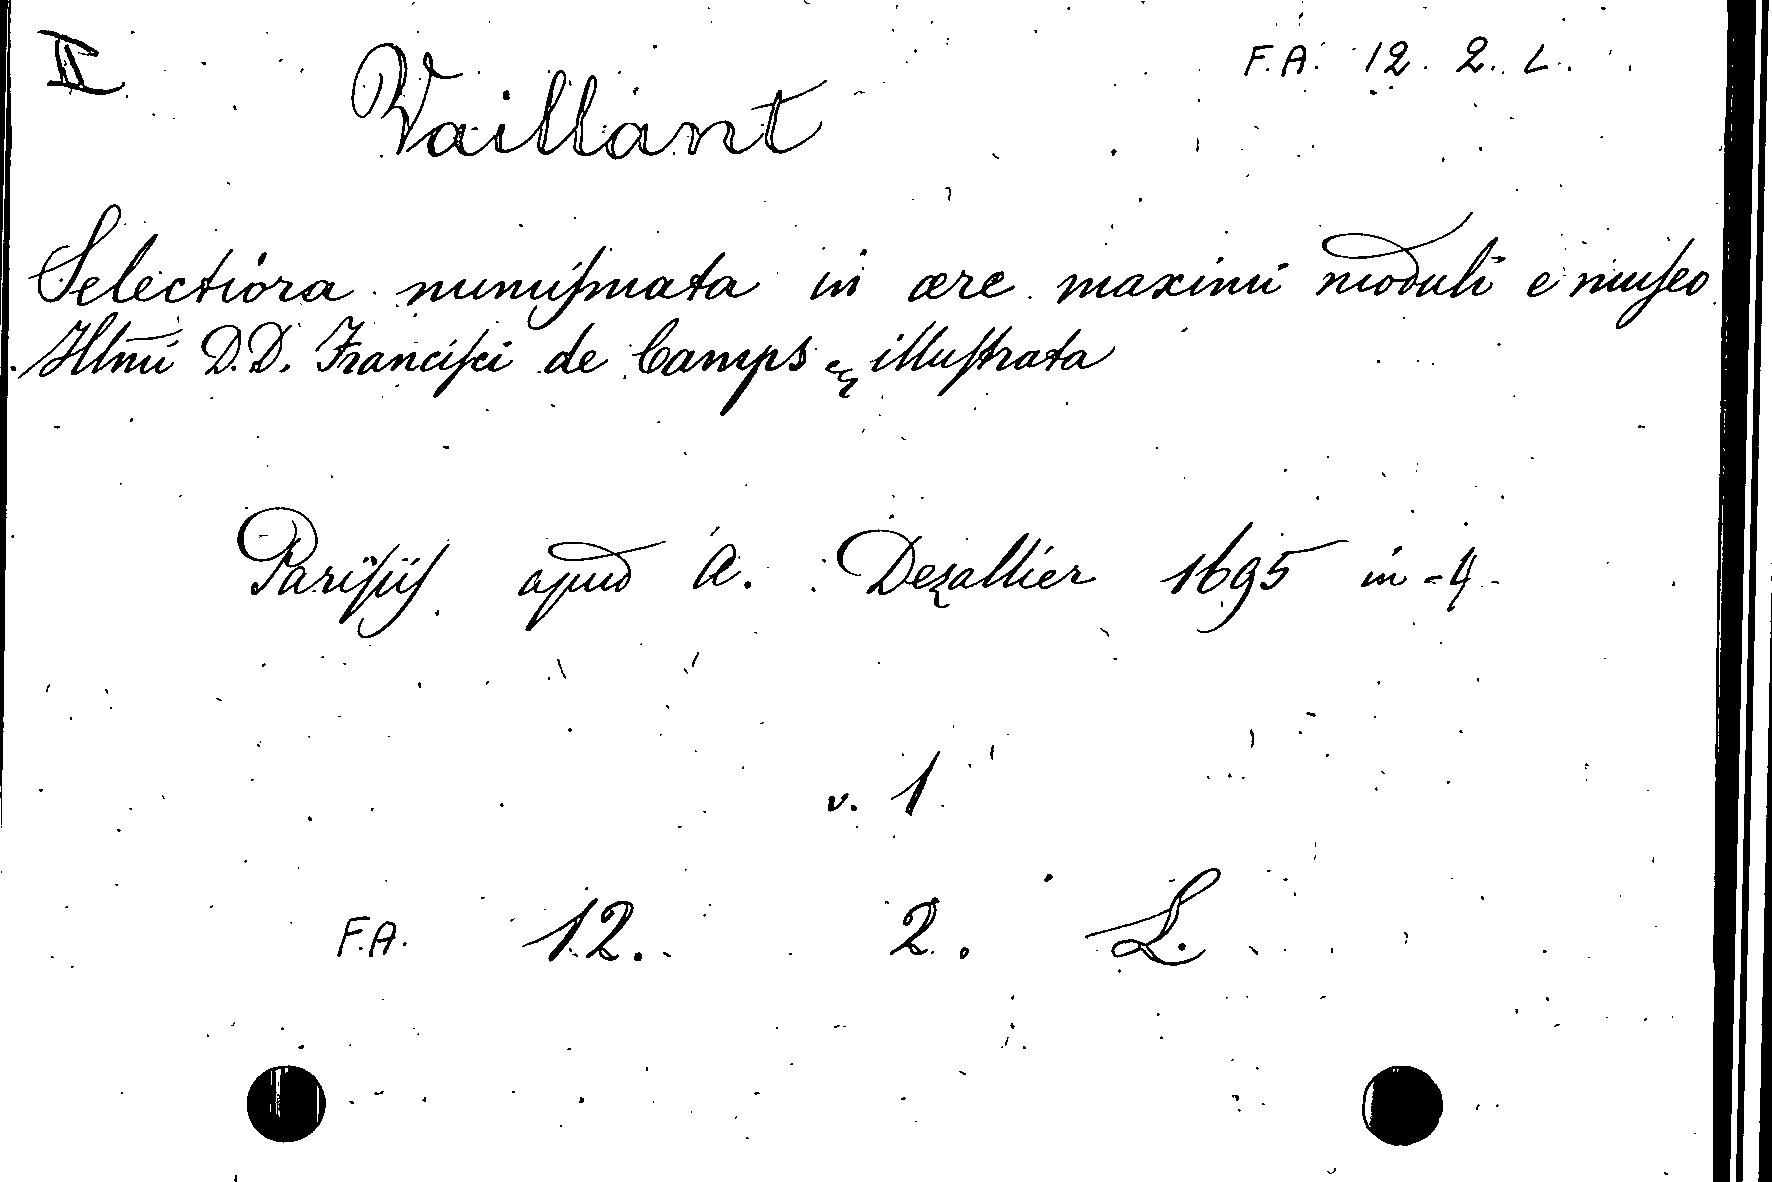 II
F.A. 12. 2. L.
Vaillant
Selectiora numiſmata in ære maximi moduli e muſeo
Illm̃i D.D. Franciſci de Camps & illuſtrata
Pariſiiſ apud A. Dezallier 1695 in-4
v. 1
F.A. 12. 2. L.